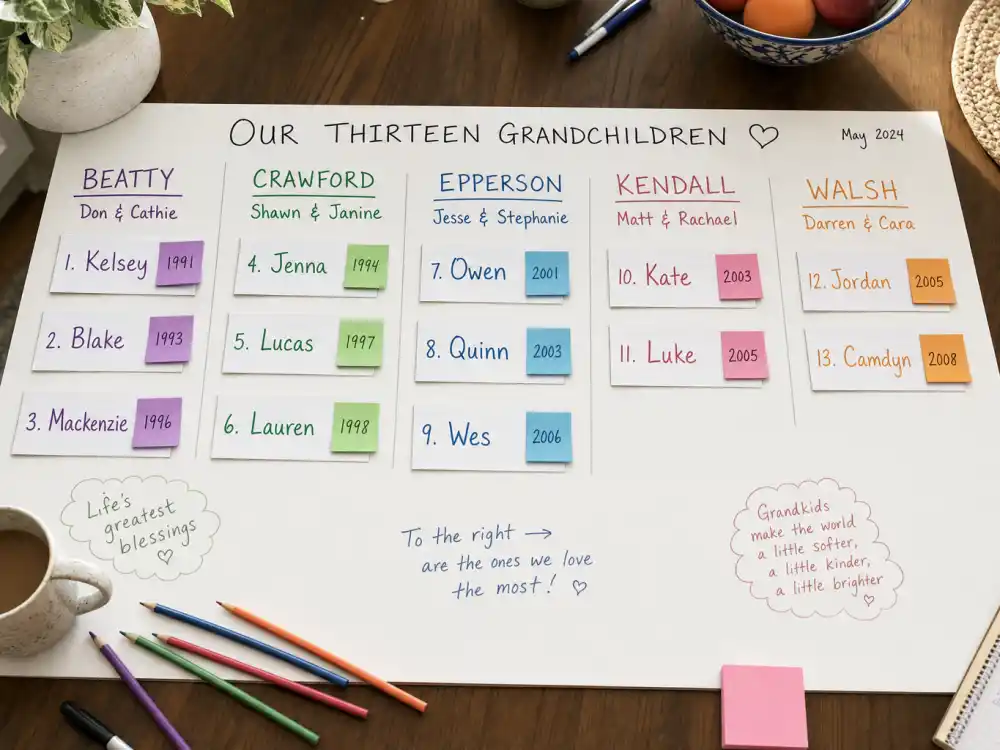 OUR THIRTEEN GRANDCHILDREN ♡
May 2024
BEATTY
Don & Cathie
1. Kelsey 1991
2. Blake 1993
3. Mackenzie 1996
CRAWFORD
Shawn & Janine
4. Jenna 1994
5. Lucas 1997
6. Lauren 1998
EPPERSON
Jesse & Stephanie
7. Owen 2001
8. Quinn 2003
9. Wes 2006
KENDALL
Matt & Rachael
10. Kate 2003
11. Luke 2005
WALSH
Darren & Cara
12. Jordan 2005
13. Camdyn 2008
Life's
greatest
blessings
♡
To the right →
are the ones we love
the most! ♡
Grandkids
make the world
a little softer,
a little kinder,
a little brighter
♡